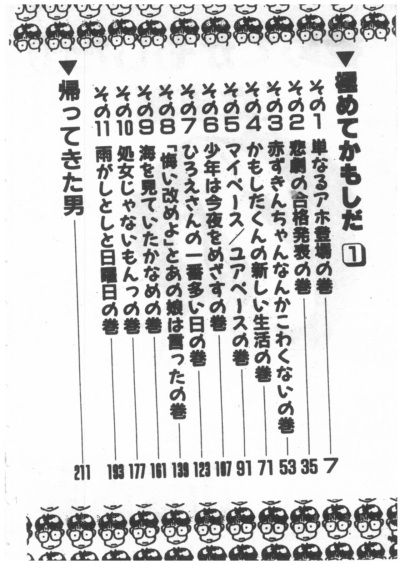 ▼極めてかもしだ 1
その1 単なるアホ登場の巻 7
その2 悲劇の合格発表の巻 35
その3 赤ずきんちゃんなんかこわくないの巻 53
その4 かもしだくんの新しい生活の巻 71
その5 マイペース／ユアペースの巻 91
その6 少年は今夜をめざすの巻 107
その7 ひろえさんの一番多い日の巻 123
その8 「悔い改めよ」とあの娘は言ったの巻 139
その9 海を見ていたかなめの巻 161
その10 処女じゃないもんっの巻 177
その11 雨がしとしと日曜日の巻 193
▼帰ってきた男 211